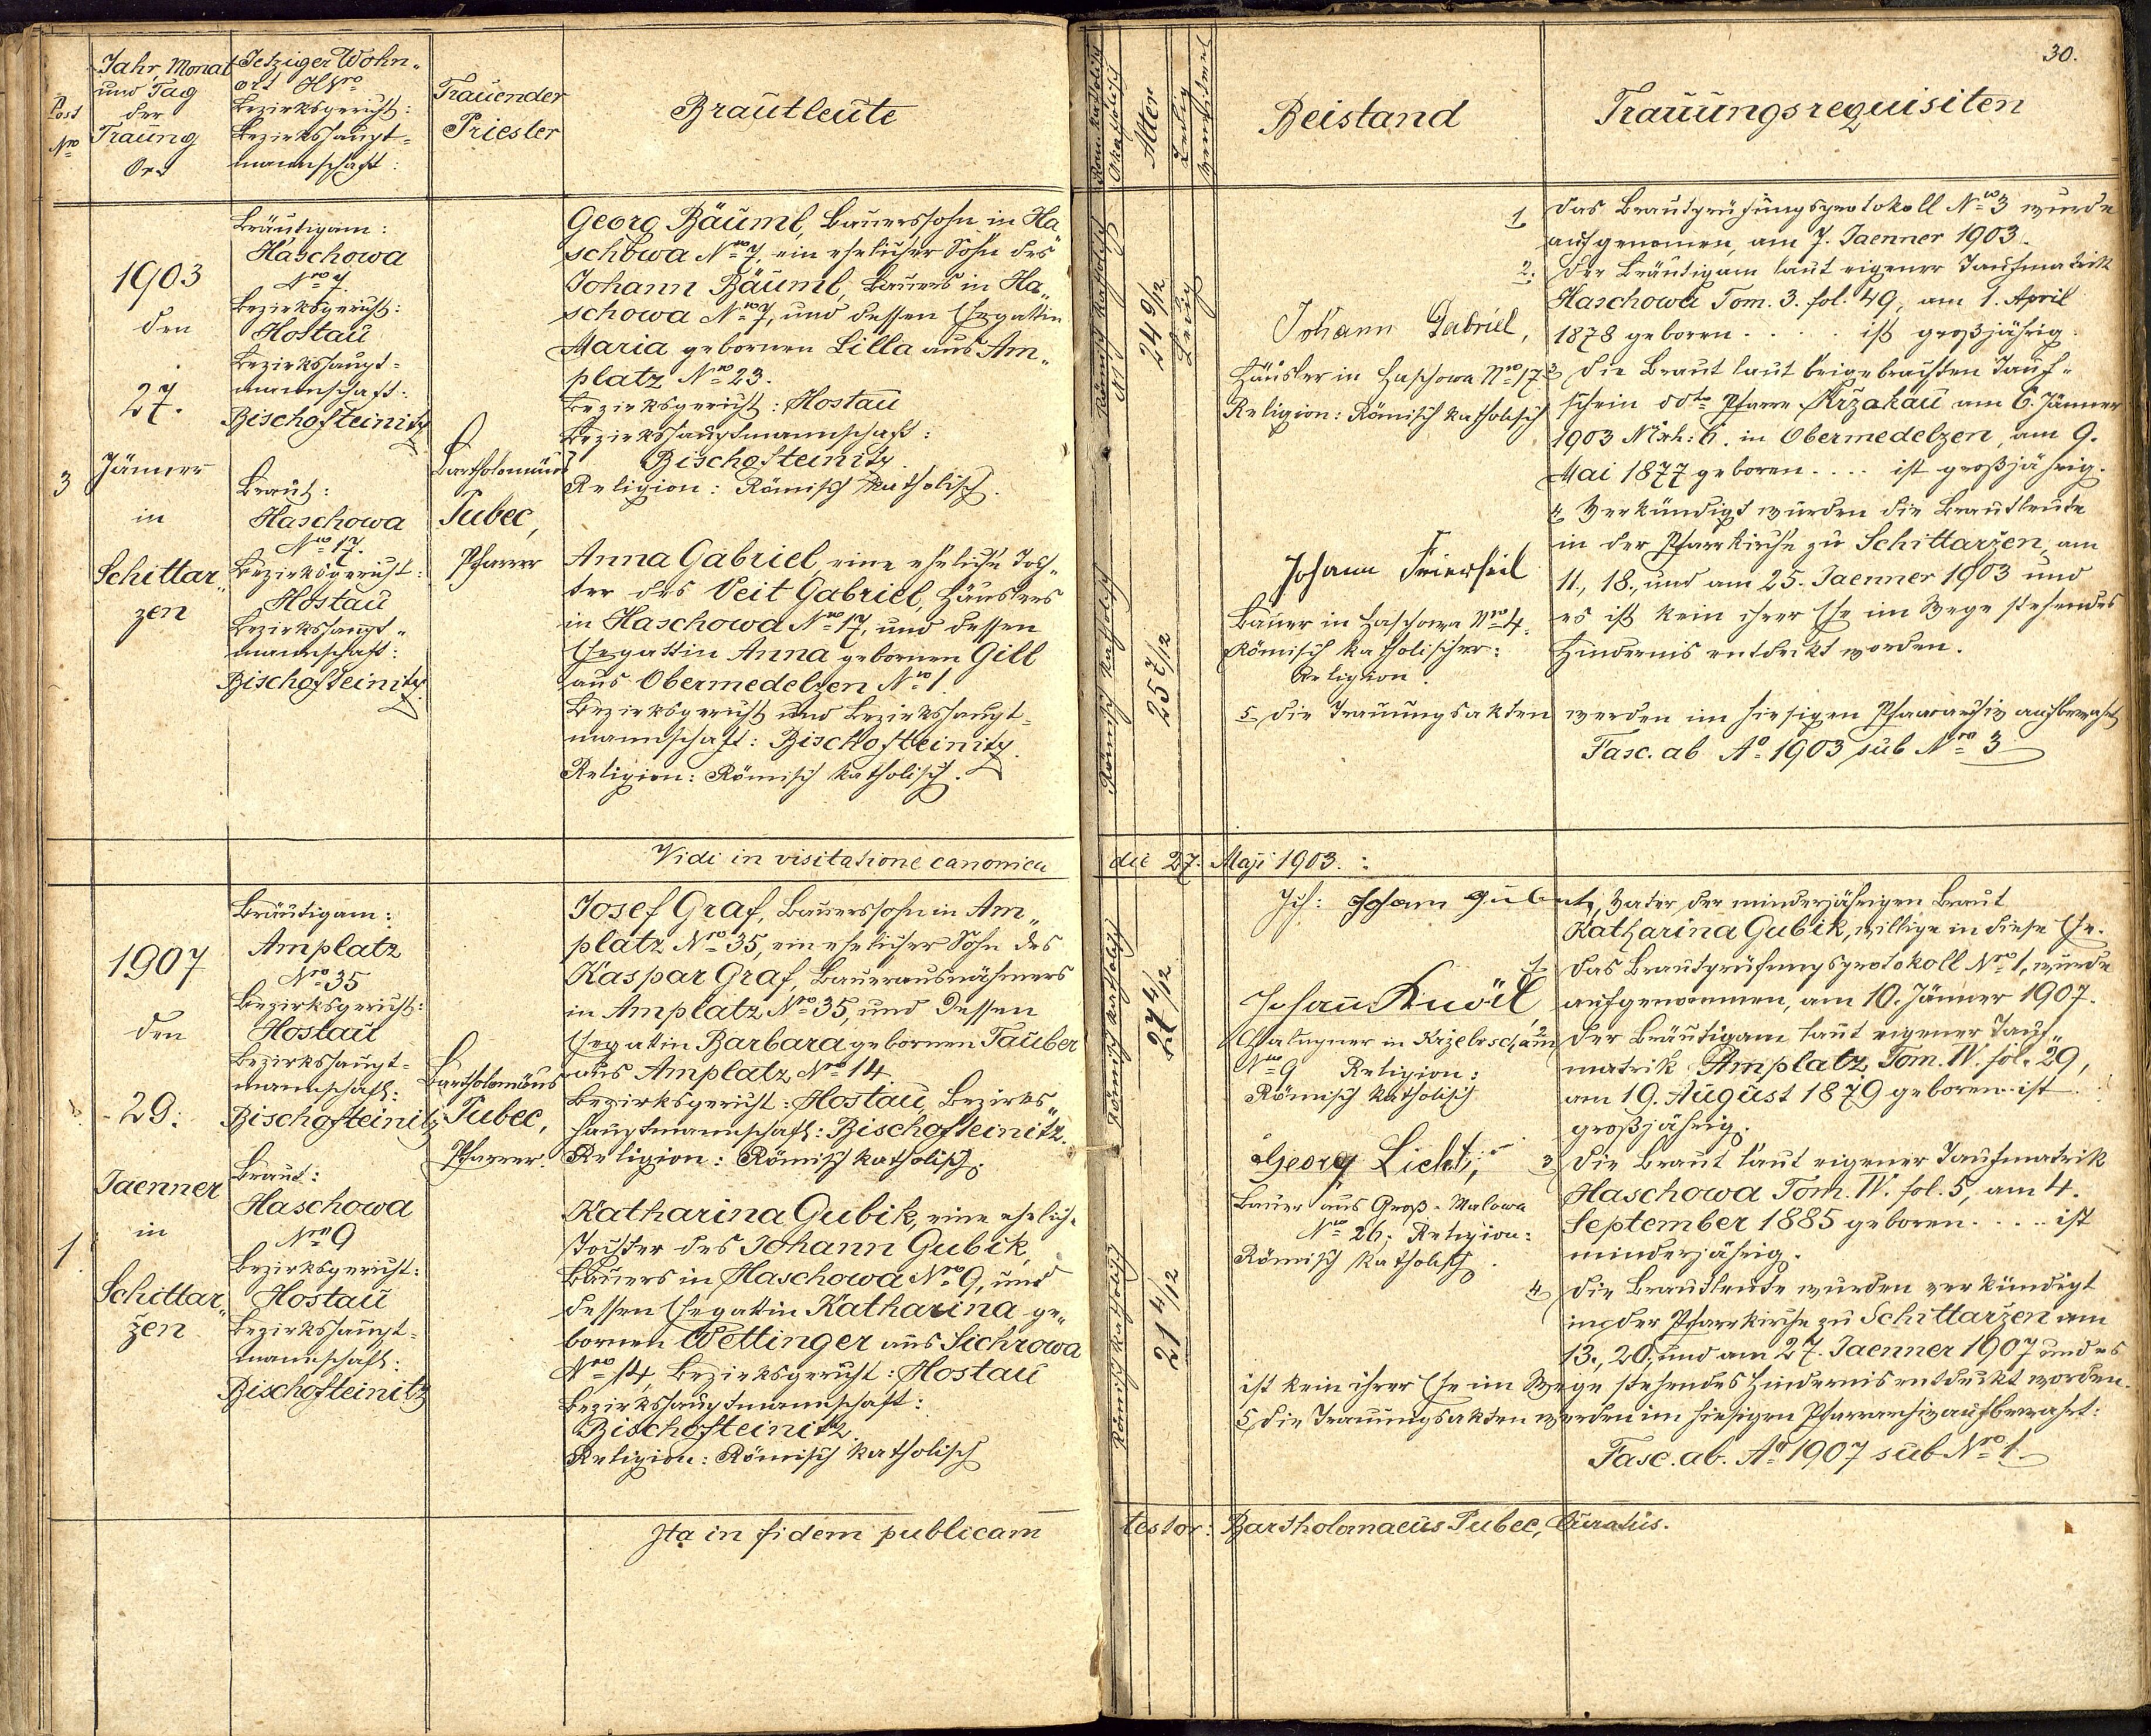 Post
Nro
Jahr, Monat
und Tag
der
Trauung
Ort
Jetziger Wohn„
ort HNro
Bezirksgericht:
Bezirkshaupt=
mannschaft:
Trauender
Priester
Brautleute
3
1903
den
27.
Jänner
in
Schittar„
zen
Bräutigam:
Haschowa
Nro 7.
Bezirksgericht:
Hostau
Bezirkshaupt=
mannschaft:
Bischofteinitz
Braut:
Haschowa
Nro 17.
Bezirksgericht:
Hostau
Bezirkshaupt„
mannschaft:
Bischofteinitz.
Bartholomäus
Tubec,
Pfarrer
Georg Bäuml, Bauerssohn in Ha„
schowa Nro 7, ein ehelicher Sohn des
Johann Bäuml, Bauers in Ha„
schowa Nro 7, und dessen Ehegattin
Maria gebornen Lilla aus Am„
platz Nro 23.
Bezirksgericht: Hostau
Bezirkshauptmannschaft:
Bischofteinitz.
Religion: Römisch katholisch.
Anna Gabriel, eine eheliche Toch„
ter des Veit Gabriel, Häuslers
in Haschowa Nro 17, und dessen
Ehegattin Anna gebornen Gill
aus Obermedelzen Nro 1.
Bezirksgericht und Bezirkshaupt=
mannschaft: Bischofteinitz.
Religion: Römisch katholisch.
Vidi in visitatione canonica
1
1907
den
29.
Jaenner
in
Schittar„
zen
Bräutigam:
Amplatz
Nro 35
Bezirksgericht:
Hostau
Bezirkshaupt=
mannschaft:
Bischofteinitz
Braut:
Haschowa
Nro 9
Bezirksgericht:
Hostau
Bezirkshaupt=
mannschaft:
Bischofteinitz
Bartholomäus
Tubec,
Pfarrer.
Josef Graf, Bauerssohn in Am„
platz Nro 35, ein ehelicher Sohn des
Kaspar Graf, Bauerausnähmers
in Amplatz Nro 35, und dessen
Ehegatin Barbara gebornen Tauber
aus Amplatz Nro 14
Bezirksgericht: Hostau, Bezirks„
hauptmannschaft: Bischofteinitz.
Religion: Römisch katholisch.
Katharina Gubik, eine ehelich.
Tochter des Johann Gubik,
Bauers in Haschowa Nro 9, und
dessen Ehegattin Katharina ge„
bornen Wettinger aus Sichrowa
Nro 14, Bezirksgericht: Hostau
Bezirkshauptmannschaft:
Bischofteinitz
Religion: Römisch katholisch
Ita in fidem publicam
30.
Röm. katholisch
Akatholisch
Alter
Ledig
Beistand
Trauungsrequisiten
Römisch katholisch
24 9/12
Ledig
Johann Gabriel,
Häusler in Haschowa Nro 17
Religion: Römisch katholisch
Römisch katholisch
25 7/12
Johann Feierfeil
Bauer in Haschowa Nro 4.
Römisch katholischer:
Religion.
1. Das Brautprüfungsprotokoll Nro 3 wurde
aufgenomen, am 7. Jaenner 1903.
2. Der Bräutigam laut eigener Taufmatrik
Haschowa Tom. 3. fol. 49, am 1. April
1878 geboren . . . . ist großjährig.
3 Die Braut laut beigebrachten Tauf„
schein ddto Pfarre Krzakau am 6. Jänner
1903 in Obermedelzen, am 9.
Mai 1877 geboren . . . . ist großjährig.
4 Verkündigt wurden die Brautleute
in der Pfarrkirche zu Schittarzen, am
11., 18., und am 25. Jaenner 1903 und
es ist kein ihrer Ehe im Wege stehendes
Hindernis entdeckt worden.
5 Die Trauungsakten werden im hiesigen Pfarrarchiv aufbewahrt
Fasc. ab Ao 1903 sub Nro 3
die 27. Maji 1903. :
Ich: Johann Gubik, Vater der minderjährigen Braut
Katharina Gubik, willige in diese Ehe.
Römisch katholisch
27 4/12
Johann Knöll
Chalupner in
Nro 9 Religion:
Römisch katholisch
Römisch katholisch
21 4/12
Georg Lichti,
Bauer aus Groß-Malowa
Nro 26. Religion:
Römisch katholisch.
1. Das Brautprüfungsprotokoll Nro 1, wurde
aufgenommen, am 10. Jänner 1907.
2 Der Bräutigam laut eigener Tauf„
matrik Amplatz Tom. IV. fol. 29,
am 19. August 1879 geboren . ist
großjährig.
3 Die Braut laut eigener Taufmatrik
Haschowa Tom. IV. fol. 5, am 4.
September 1885 geboren . . . . ist
minderjährig.
4 Die Brautleute wurden verkündigt
in der Pfarrkirche zu Schittarzen am
13., 20., und am 27. Jaenner 1907 und es
ist kein ihrer Ehe im Wege stehendes Hindernis entdeckt worden.
5 Die Trauungsakten werden im hiesigen Pfarrarchiv aufbewahrt:
Fasc. ab. Ao 1907 sub Nro 1
testor: Bartholomaeus Tubec, Curatus.